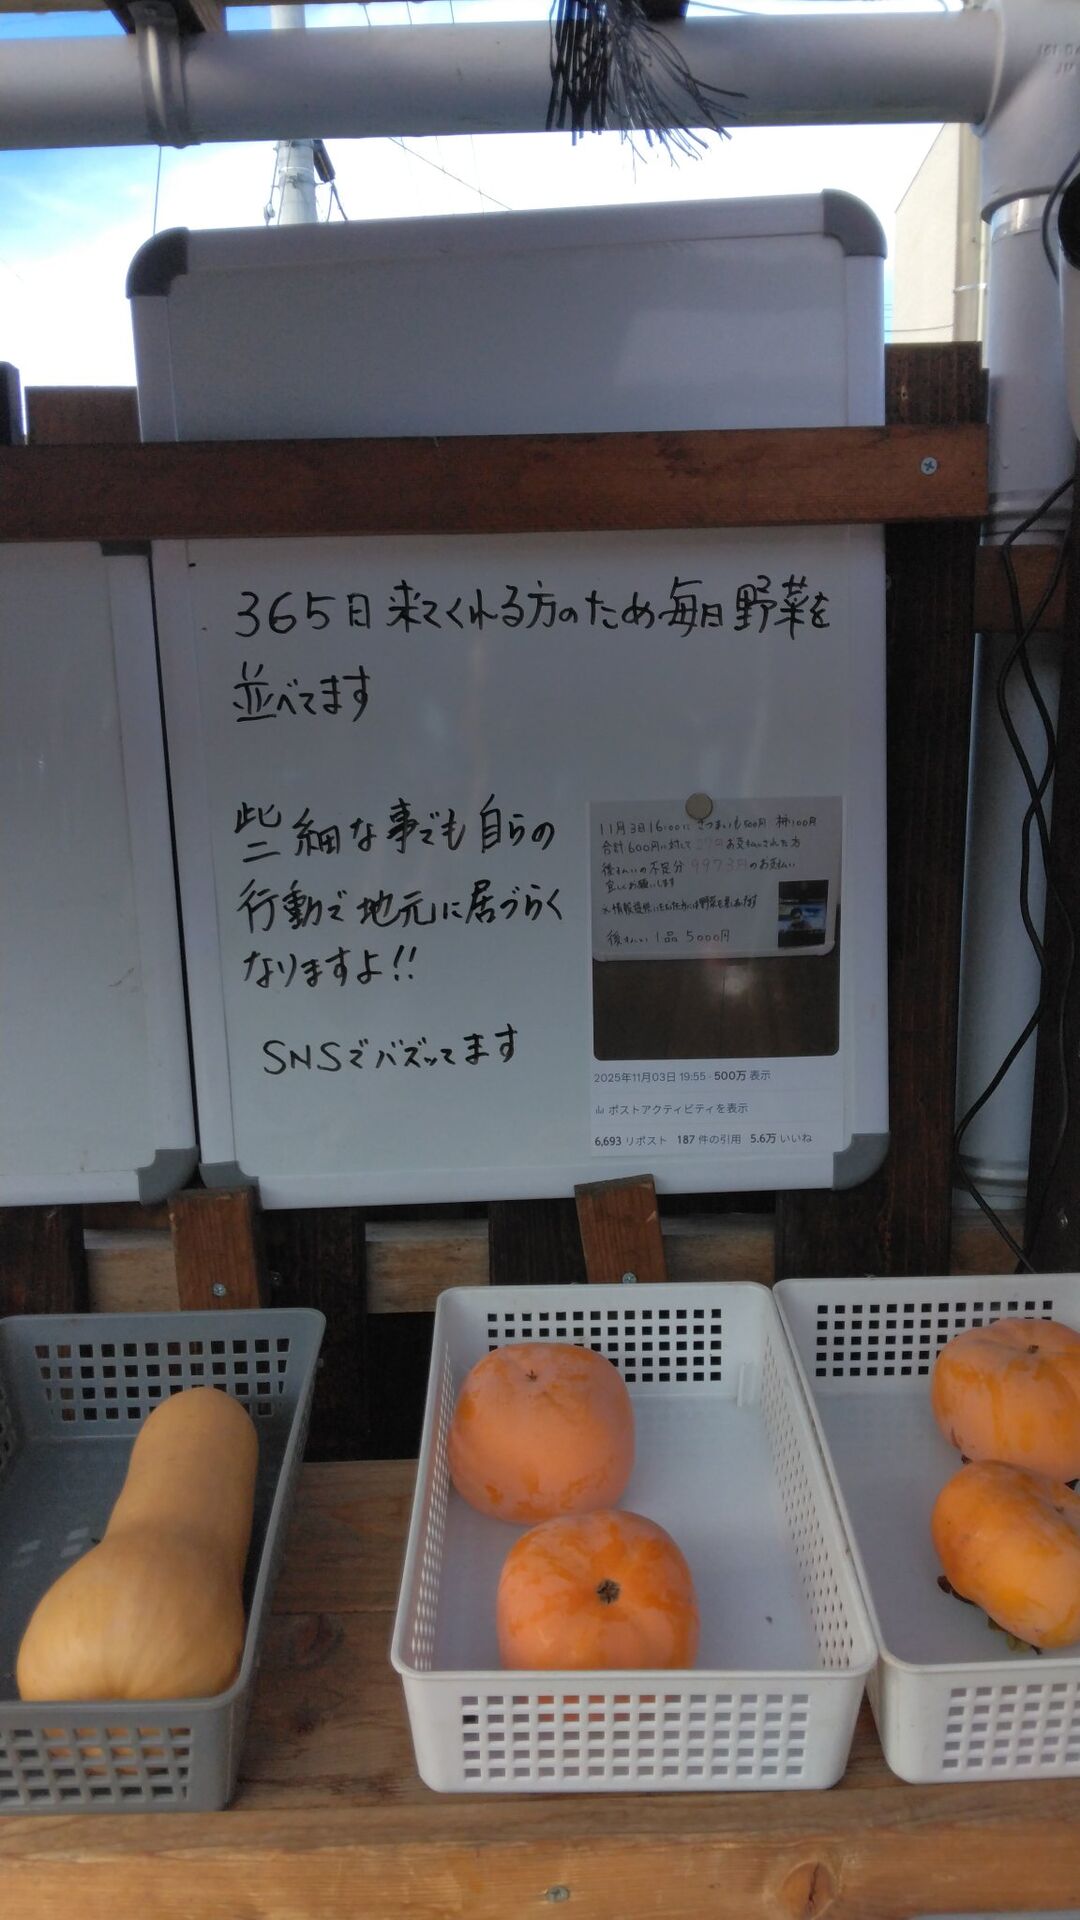 365日来てくれる方のため毎日野菜を
並べてます
些細な事でも自らの
行動で地元に居づらく
なりますよ!!
SNSでバズってます
11月3日16:00に さつまいも500円 柿100円
合計600円に対して 27円お支払いされた方
後払いの不足分 9973円のお支払い
宜しくお願いします
後払い 1品 5000円
2025年11月03日 19:55 · 500万 表示
ポストアクティビティを表示
6,693 リポスト 187 件の引用 5.6万 いいね